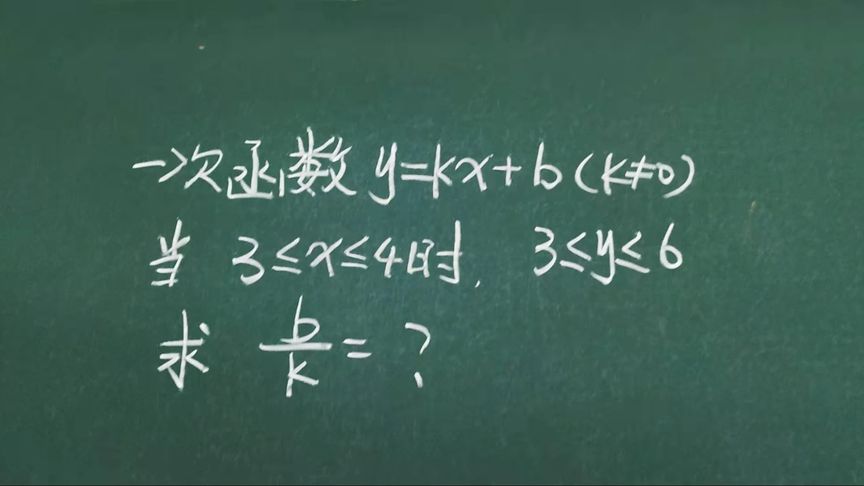 一次函数 y=kx+b(k≠0)
当 3≤x≤4时, 3≤y≤6
求 b/k = ?